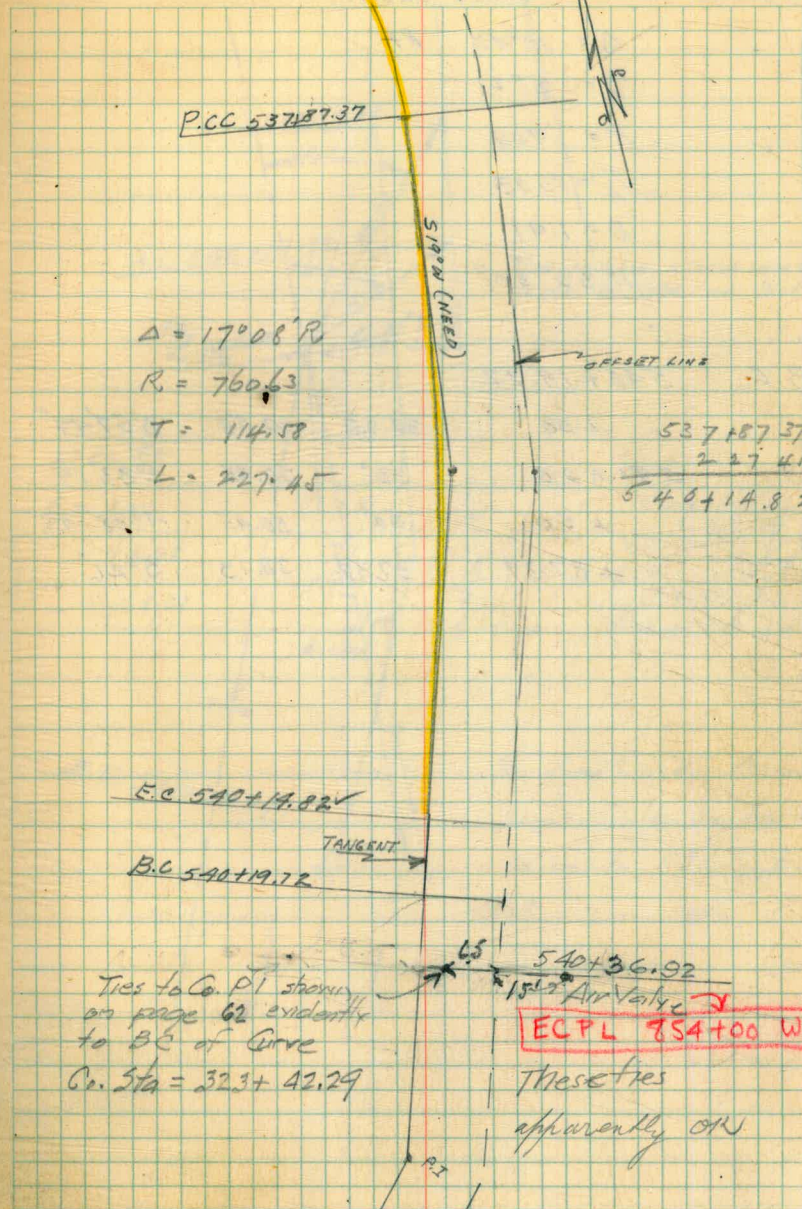 P.CC 537+87.37
S19°W (NEED)
Δ = 17°08'R
R = 760.63
T = 114.58
L = 227.45
OFFSET LINE
537+87 37
2 27 4
540+14.82
E.C 540+14.82✓
TANGENT
B.C 540+19.72
6.5
540+36.92
Air Valve
ECPL 854+00 W
Ties to Co. PI shown
on page 62 evidently
to BC of Curve
Co. Sta = 323+42.29
These ties
apparently OK
P.I